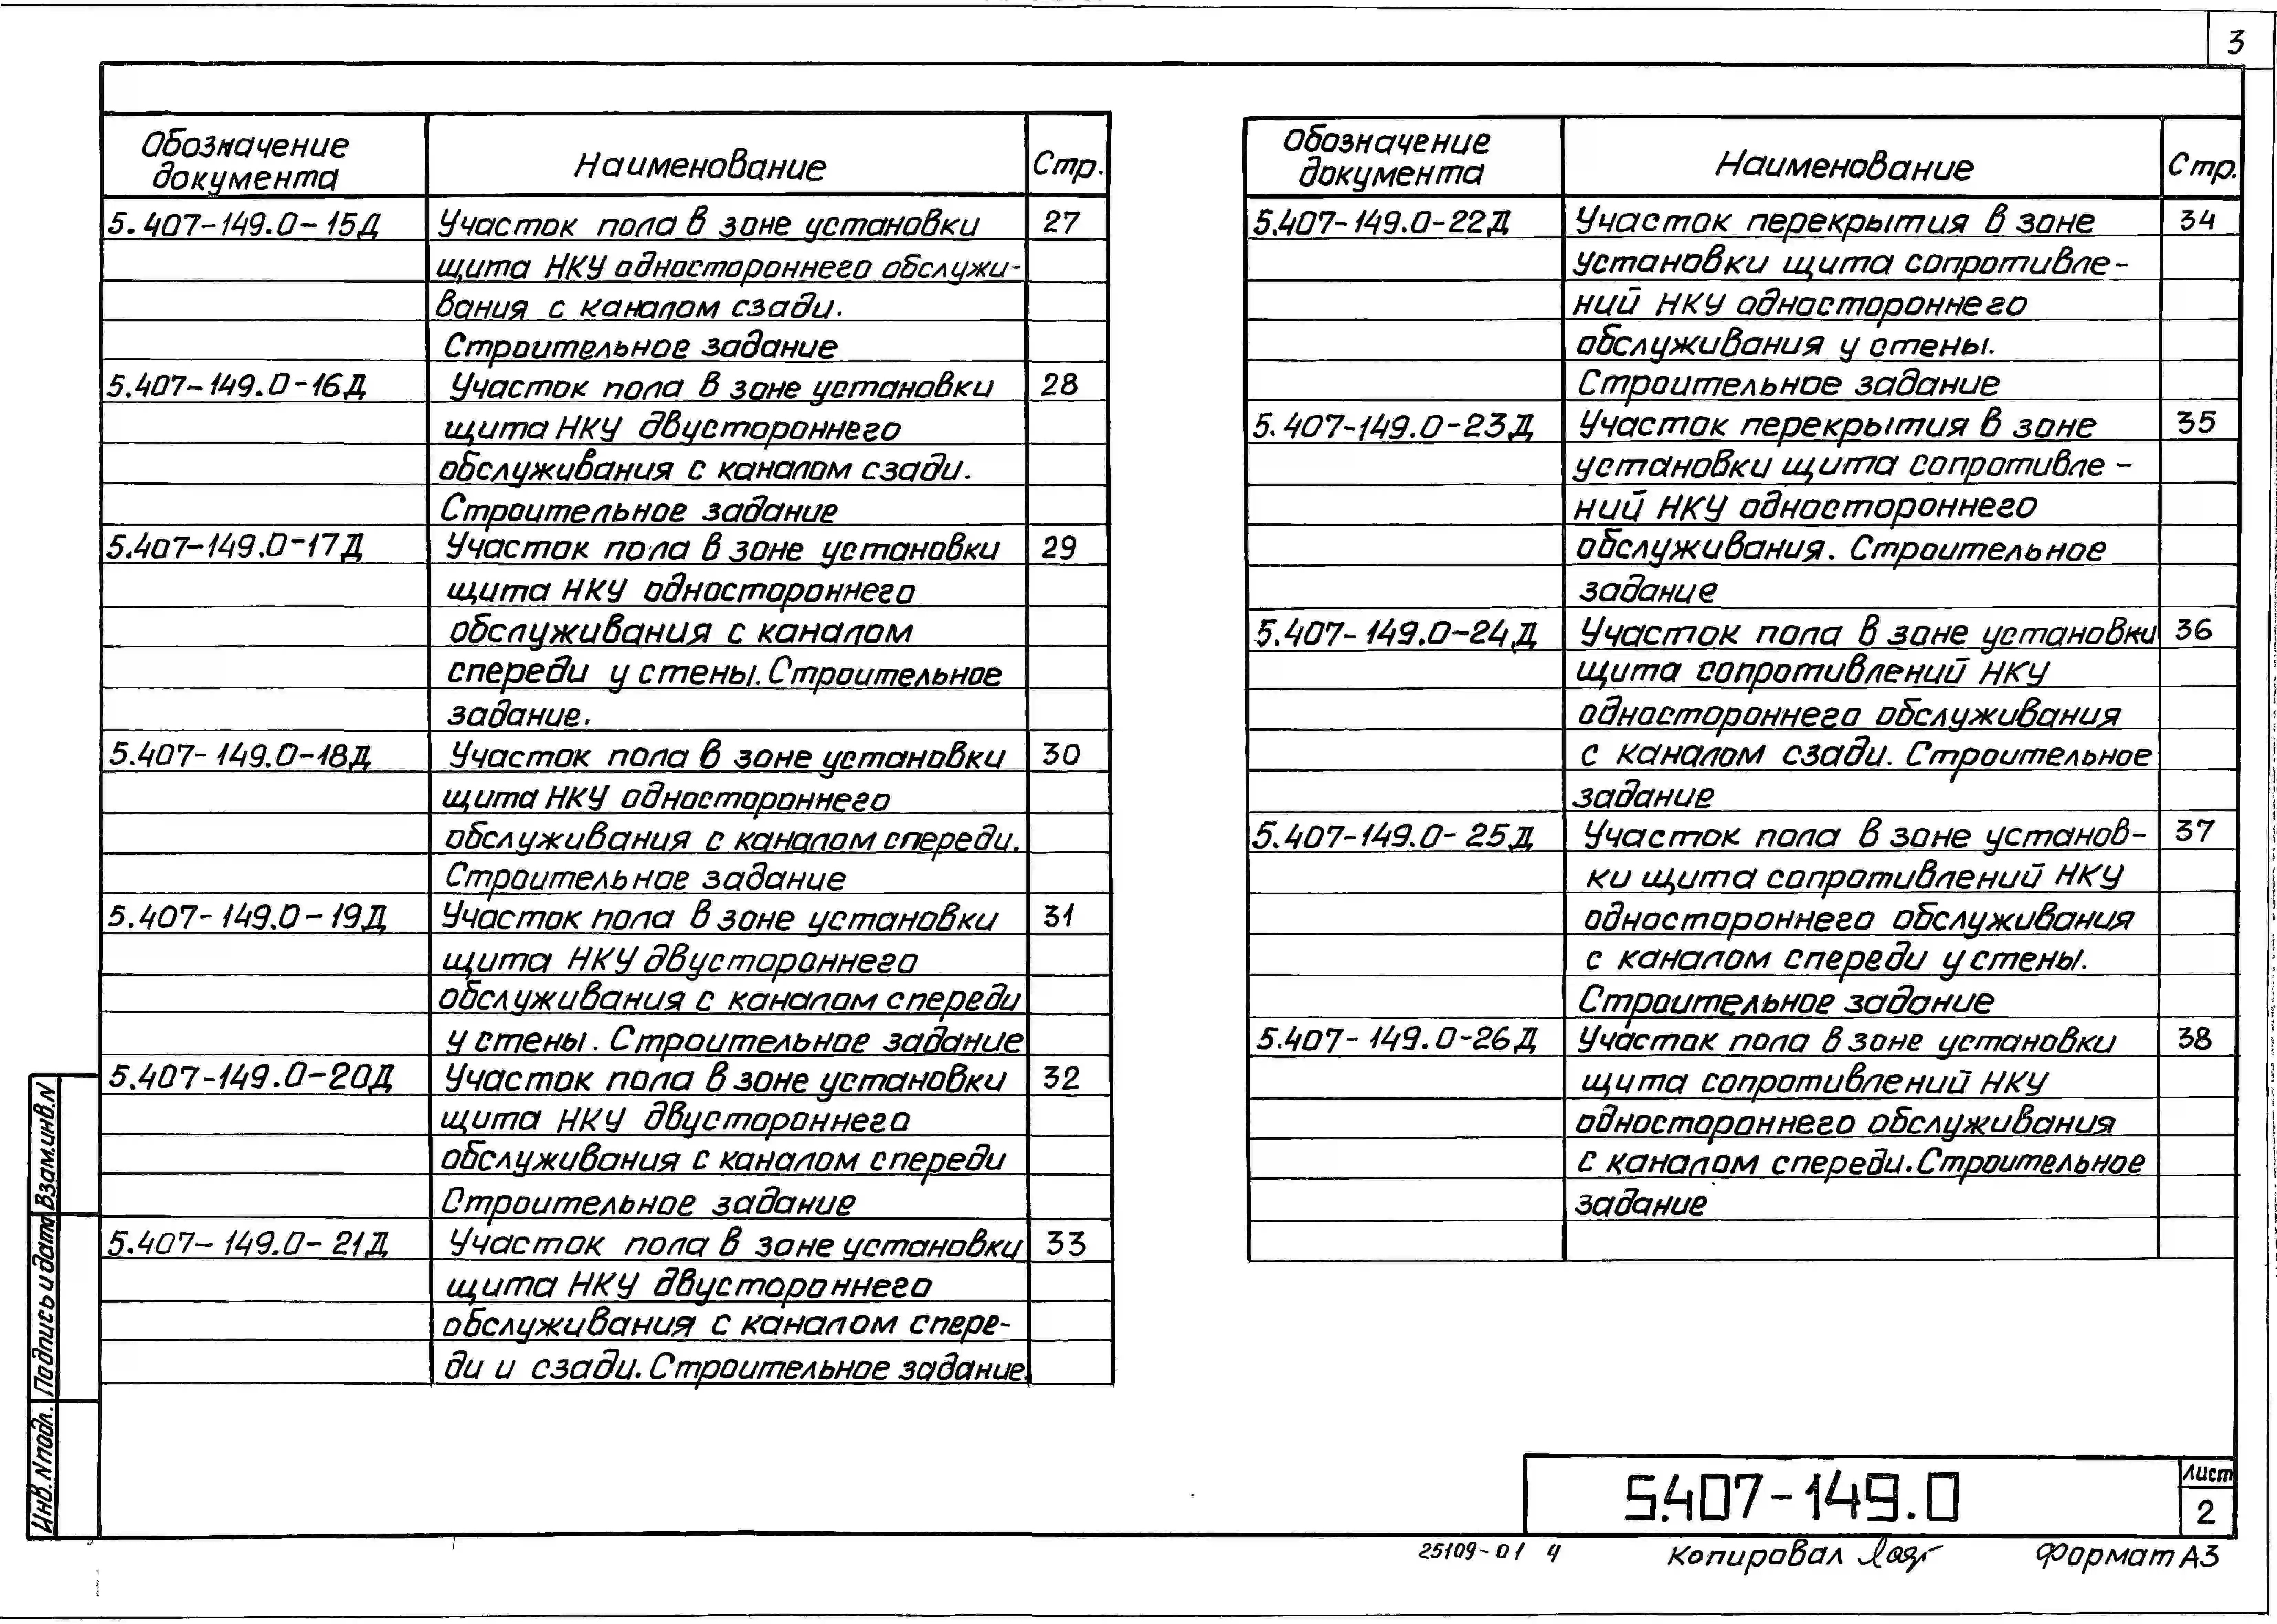 3
Обозначение
документа
Наименование
Стр.
5.407-149.0-15Д Участок пола в зоне установки 27
щита НКУ одностороннего обслужи-
вания с каналом сзади.
Строительное задание
5.407-149.0-16Д Участок пола в зоне установки 28
щита НКУ двустороннего
обслуживания с каналом сзади.
Строительное задание
5.407-149.0-17Д Участок пола в зоне установки 29
щита НКУ одностороннего
обслуживания с каналом
спереди у стены. Строительное
задание.
5.407-149.0-18Д Участок пола в зоне установки 30
щита НКУ одностороннего
обслуживания с каналом спереди.
Строительное задание
5.407-149.0-19Д Участок пола в зоне установки 31
щита НКУ двустороннего
обслуживания с каналом спереди
у стены. Строительное задание
5.407-149.0-20Д Участок пола в зоне установки 32
щита НКУ двустороннего
обслуживания с каналом спереди
Строительное задание
5.407-149.0-21Д Участок пола в зоне установки 33
щита НКУ двустороннего
обслуживания с каналом спере-
ди и сзади. Строительное задание.
Обозначение
документа
Наименование
Стр.
5.407-149.0-22Д Участок перекрытия в зоне 34
установки щита сопротивле-
ний НКУ одностороннего
обслуживания у стены.
Строительное задание
5.407-149.0-23Д Участок перекрытия в зоне 35
установки щита сопротивле-
ний НКУ одностороннего
обслуживания. Строительное
задание
5.407-149.0-24Д Участок пола в зоне установки 36
щита сопротивлений НКУ
одностороннего обслуживания
с каналом сзади. Строительное
задание
5.407-149.0-25Д Участок пола в зоне установ- 37
ки щита сопротивлений НКУ
одностороннего обслуживания
с каналом спереди у стены.
Строительное задание
5.407-149.0-26Д Участок пола в зоне установки 38
щита сопротивлений НКУ
одностороннего обслуживания
с каналом спереди. Строительное
задание
Взам.инв.N
Подпись и дата
Инв.N подл.
5.407-149.0
Лист
2
25109-01 4
Копировал
Формат А3